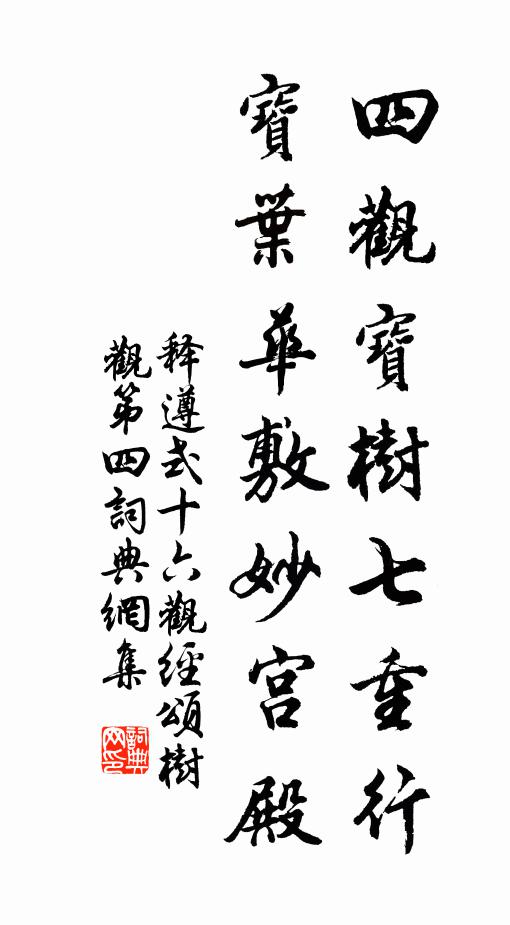 四觀寶樹七重行
寶葉華敷妙宫殿
释遵式十六觀經頌樹
觀第四詞典網集
詞典网印